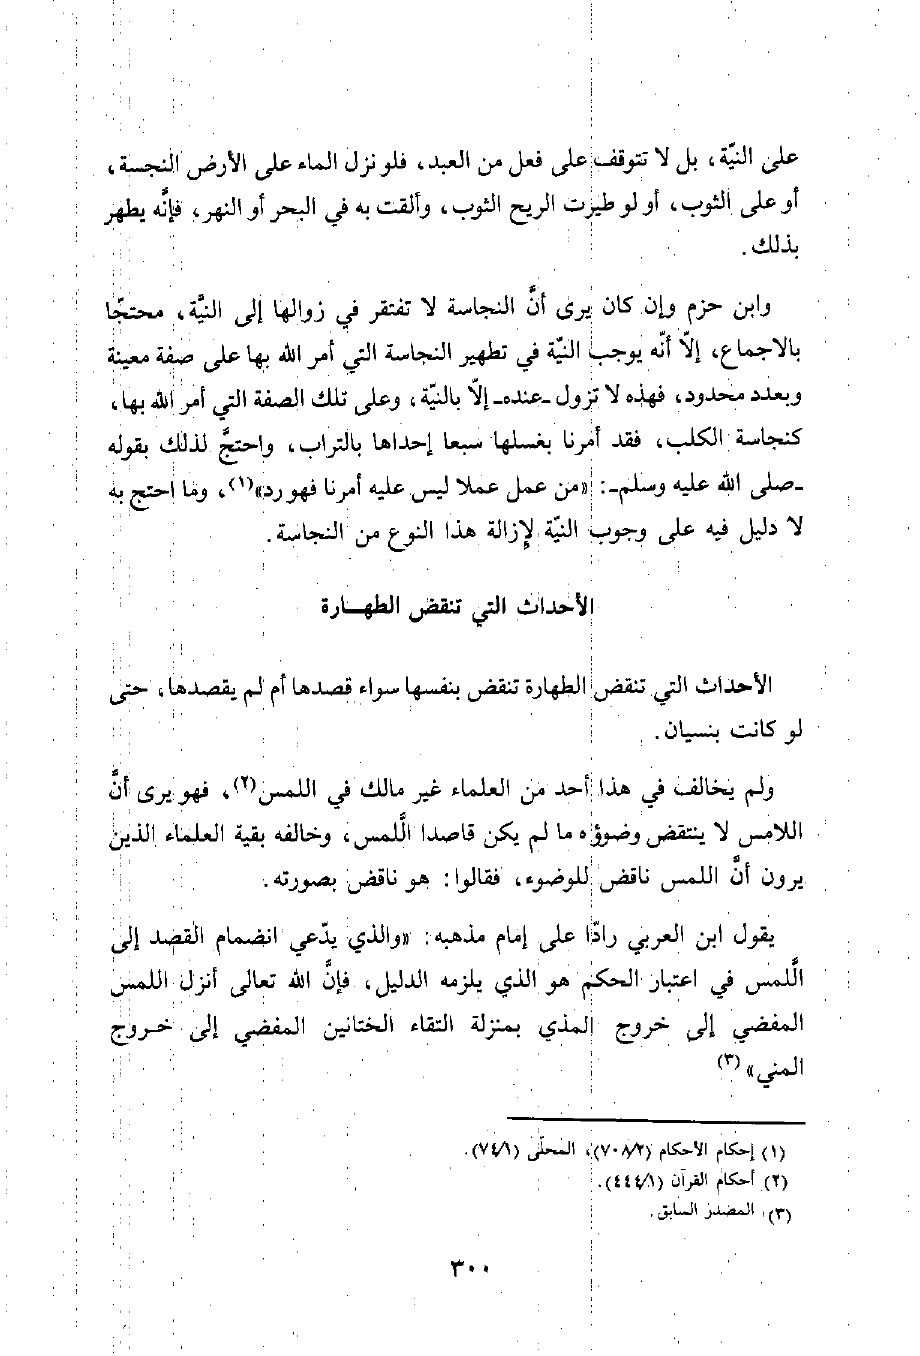 على النيّة، بل لا تتوقف على فعل من العبد، فلو نزل الماء على الأرض النجسة،
أو على الثوب، أو لو طيرت الريح الثوب، وألقت به في البحر أو النهر، فإنَّه يطهر
بذلك.
وابن حزم وإن كان يرى أنَّ النجاسة لا تفتقر في زوالها إلى النيَّة، محتجّا
بالاجماع، إلاّ أنّه يوجب النيّة في تطهير النجاسة التي أمر الله بها على صفة معينة
وبعدد محدود، فهذه لا تزول ـ عنده ـ إلاّ بالنيّة، وعلى تلك الصفة التي أمر الله بها،
كنجاسة الكلب، فقد أمرنا بغسلها سبعا إحداها بالتراب، واحتجَّ لذلك بقوله
ـ صلى الله عليه وسلم ـ: «من عمل عملا ليس عليه أمرنا فهو رد»(١)، وما احتج به
لا دليل فيه على وجوب النيّة لإزالة هذا النوع من النجاسة.
الأحداث التي تنقض الطهـارة
الأحداث التي تنقض الطهارة تنقض بنفسها سواء قصدها أم لم يقصدها، حتى
لو كانت بنسيان.
ولم يخالف في هذا أحد من العلماء غير مالك في اللمس(٢)، فهو يرى أنَّ
اللامس لا ينتقض وضوؤه ما لم يكن قاصدا الَّلمس، وخالفه بقية العلماء الذين
يرون أنَّ اللمس ناقض للوضوء، فقالوا: هو ناقض بصورته.
يقول ابن العربي رادّا على إمام مذهبه: «والذي يدّعي انضمام القصد إلى
الَّلمس في اعتبار الحكم هو الذي يلزمه الدليل، فإنَّ الله تعالى أنزل اللمس
المفضي إلى خروج المذي بمنزلة التقاء الختانين المفضي إلى خـروج
المني»(٣)
(١) إحكام الأحكام (٧٠٨/٢)، المحلّى (٧٤/١).
(٢) أحكام القرآن (٤٤٤/١).
(٣) المصدر السابق.
٣٠٠